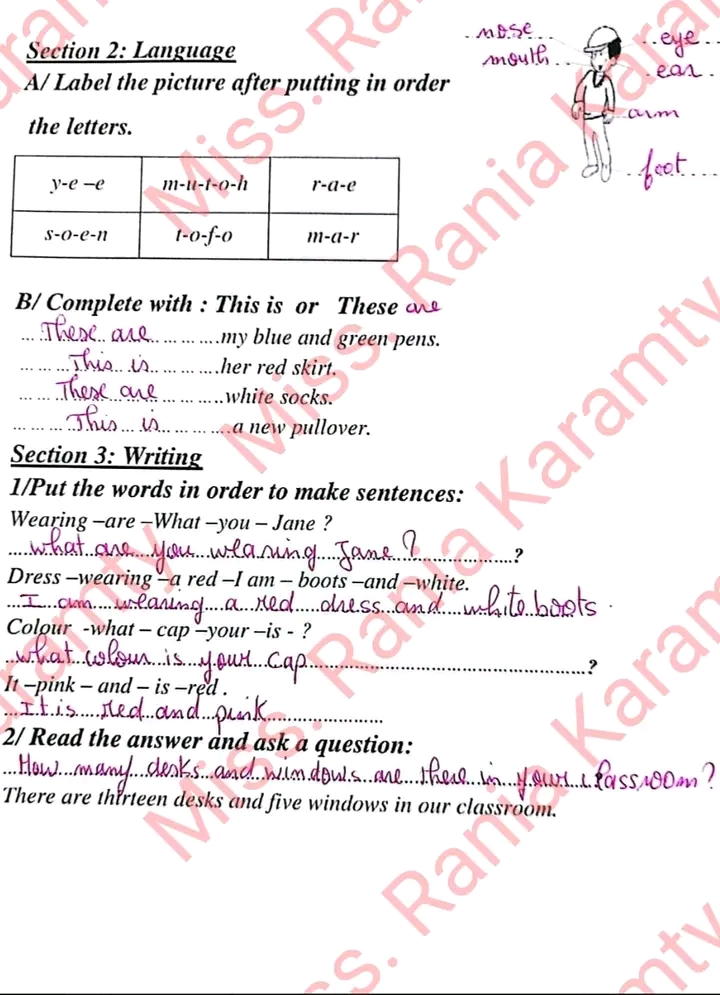 Section 2: Language
A/ Label the picture after putting in order
the letters.
nose
mouth
eye
ear
arm
foot
y-e –e m-u-t-o-h r-a-e
s-o-e-n t-o-f-o m-a-r
B/ Complete with : This is or These are
These are my blue and green pens.
This is her red skirt.
These are white socks.
This is a new pullover.
Section 3: Writing
1/Put the words in order to make sentences:
Wearing –are –What –you – Jane ?
what are you wearing Jane? ?
Dress –wearing –a red –I am – boots –and –white.
I am wearing a red dress and white boots.
Colour -what – cap –your –is - ?
what colour is your cap ?
It –pink – and – is –red .
It is red and pink
2/ Read the answer and ask a question:
How many desks and windows are there in your classroom?
There are thirteen desks and five windows in our classroom.
Miss. Rania Karamty